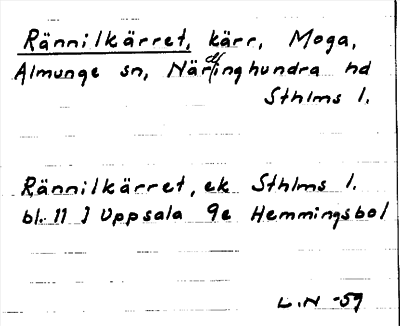 Rännilkärret, kärr, Moga,
Almunge sn, Närdinghundra hd
Sthlms l.
Rännilkärret, ek Sthlms l.
bl. 11 J Uppsala 9e Hemmingsbol
L.N -59